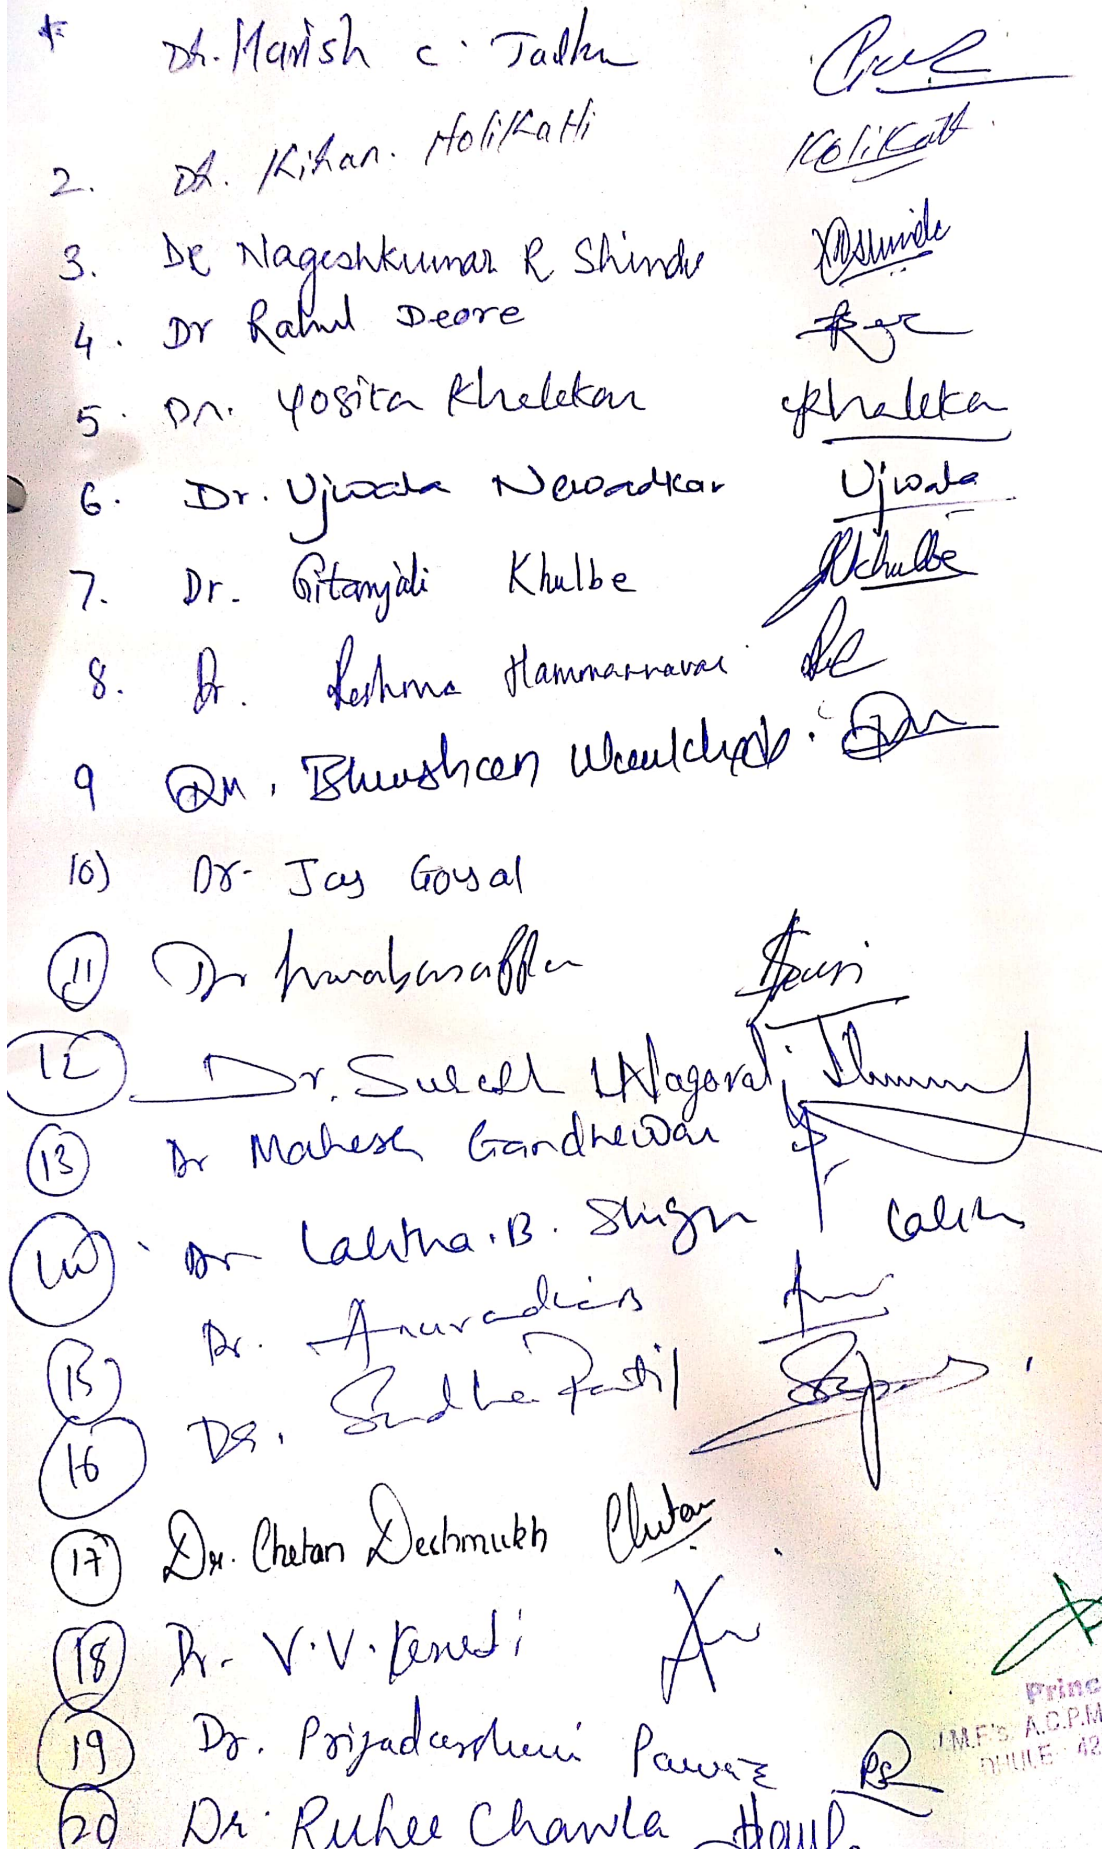 * Dr. Harish C. Jadhav
2. Dr. Kiran. Holikatti Kolikatti.
3. Dr Nageshkumar R Shinde Shinde
4. Dr Rahul Deore
5. Dr. Yogita Khalekar Khalekar
6. Dr. Ujwala Newadkar Ujwala
7. Dr. Gitanjali Khulbe Khulbe
8. Dr. Reshma Hammannavar
9 Dr. Bhushan
10) Dr. Jay Goyal
11 Dr
12 Dr. Suresh
13 Dr Mahesh Gandhewar
14 Dr Lalitha.B. Lalith
15 Dr. Anuradha
16 Dr. Sudha Patil
17 Dr. Chetan Deshmukh Chetan
18 Dr. V.V.
19 Dr. Priyadarshini Pawar
Princ
J.M.F's. A.C.P.M
DHULE 42
20 Dr. Ruhee Chawla